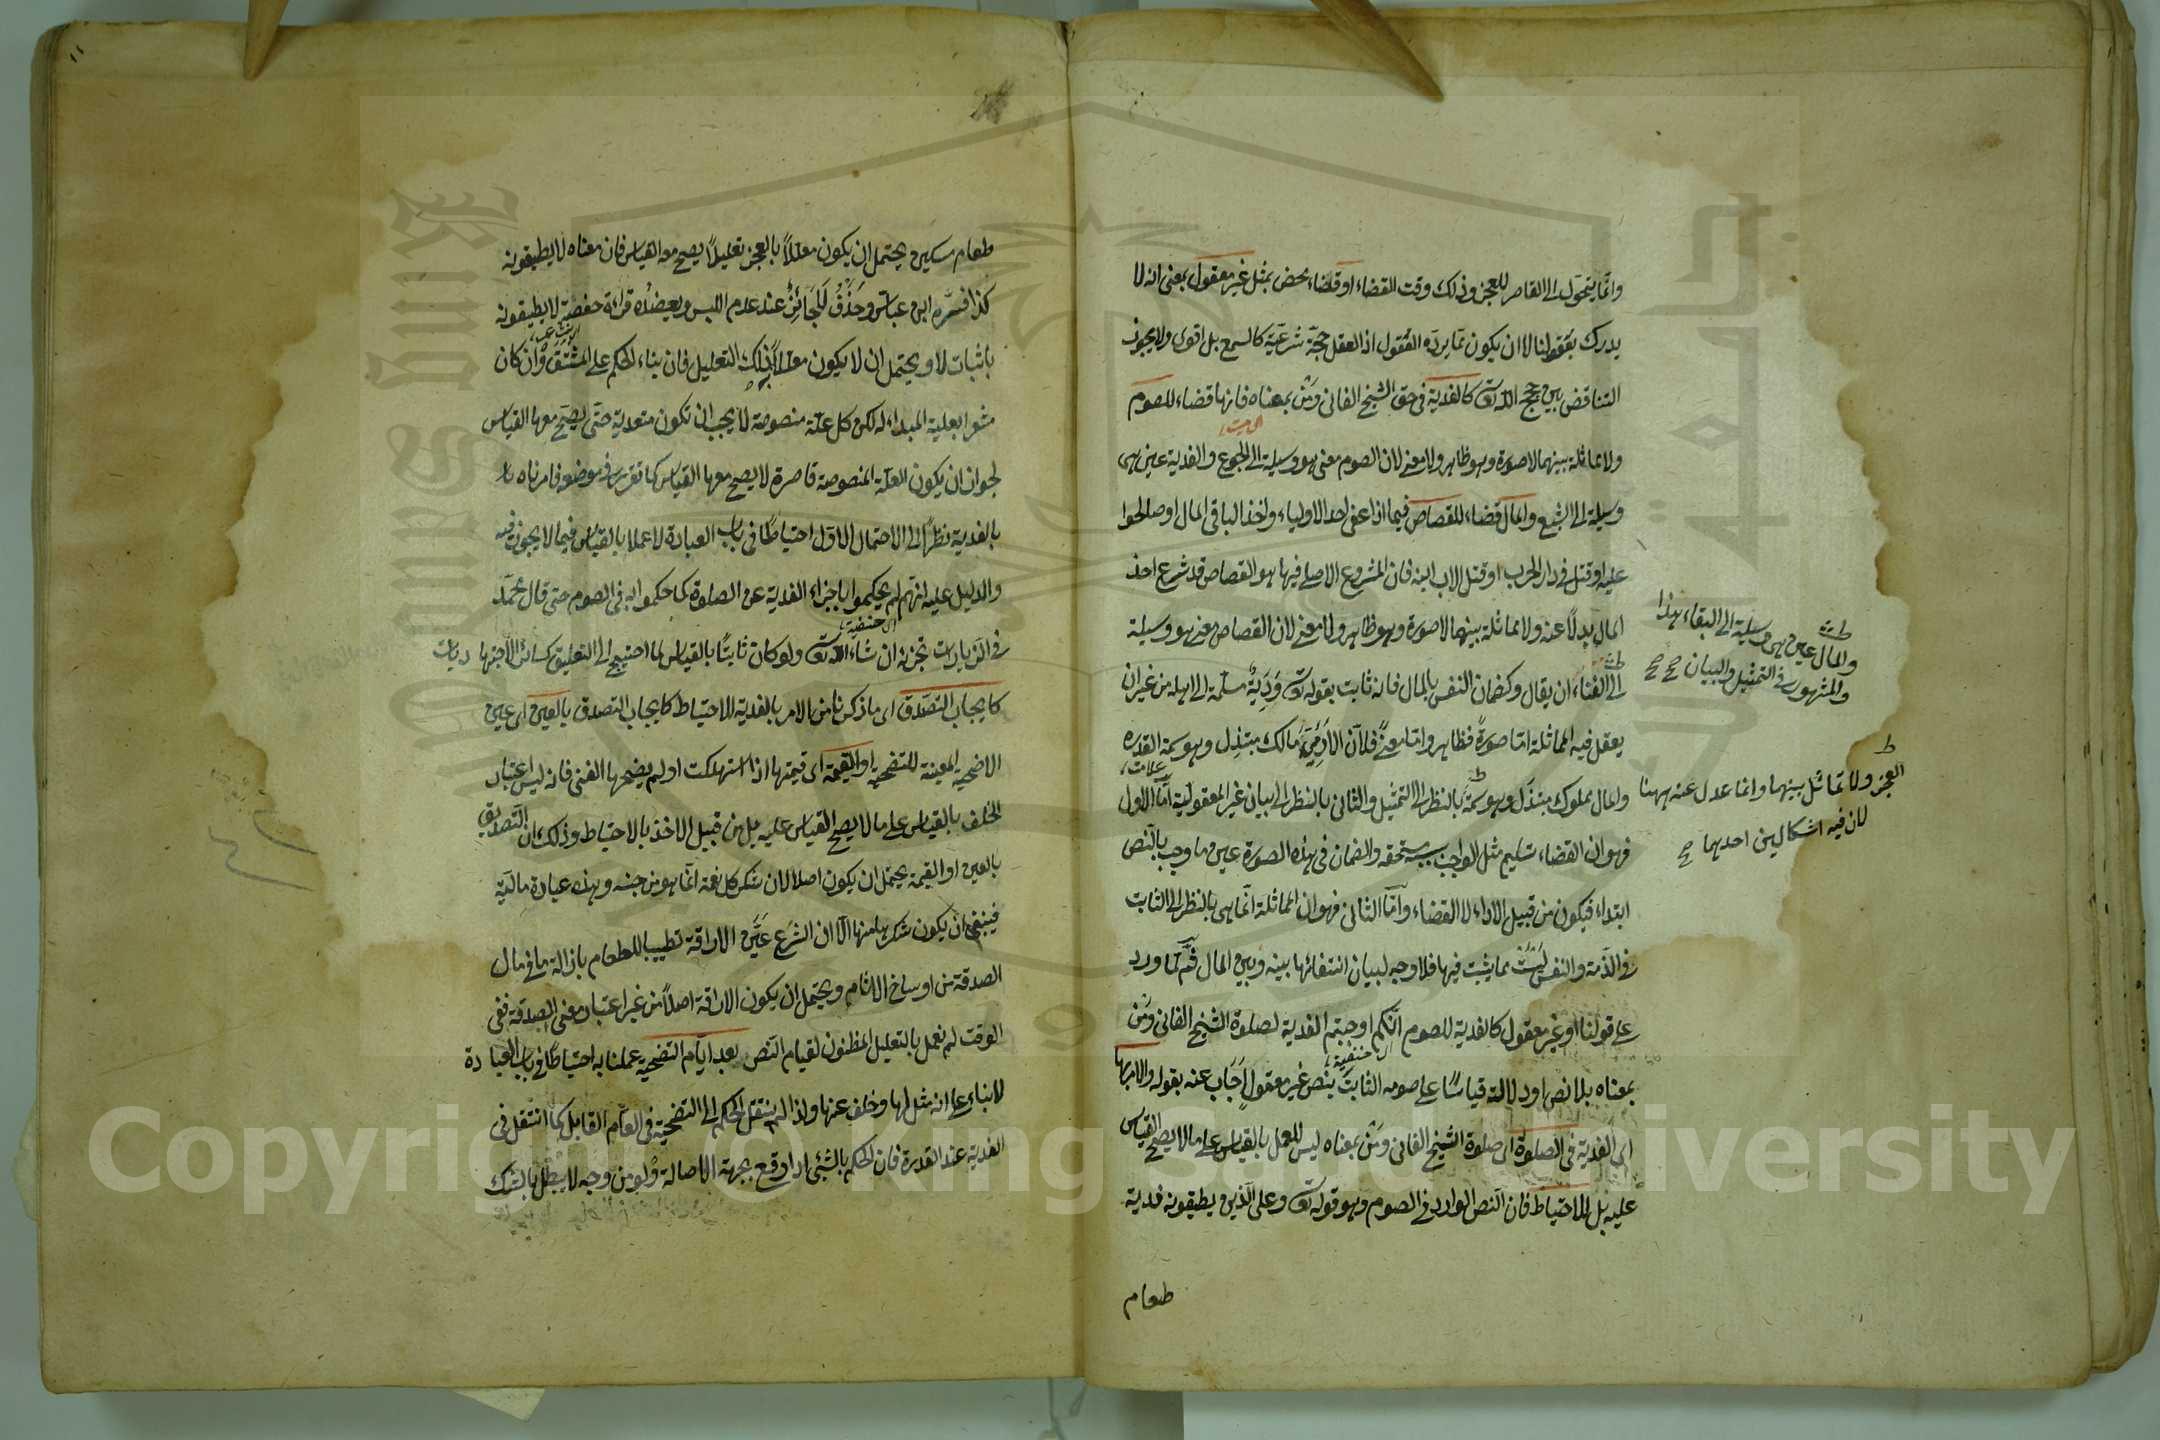 وانما يتحول الى القاصر للعجز وذلك وقت القضاء او قضاء محض بمثل غير معقول بمعنى انه لا
يدرك بعقولنا لا ان يكون مما يرده العقول اذ العقل حجة شرعية كالسمع بل اقوى ولا يجوز
التناقض بين حجج الله تع كالفدية في حق الشيخ الفانى ومن بمعناه فانها قضاء للصوم
ولا مماثلة بينهما لا صورة وهو ظاهر ولا معنى لان الصوم معنى هو وسيلة الى الجوع والفدية عين هى
وسيلة الى الشبع والمال قضاء للقصاص فيما اذا عفى احد الاولياء واخذ الباقى المال او صالحوا
عليه او قتل فى دار الحرب او قتل الاب ابنه فان المشروع الاصلى فيها هو القصاص قد شرع اخذ
المال بدلا عنه ولا مماثلة بينهما لا صورة وهو ظاهر ولا معنى لان القصاص معنى هو وسيلة
الى الفناء ان يقال وكضمان النفس بالمال فانه ثابت بقوله تع ودية مسلمة الى اهله من غير ان
يعقل فيه المماثلة اما صورة فظاهر واما معنى فلان الآدمى مالك مبتذل وهو سمة القدرة
والمال مملوك مبتذل وهو سمة بالنظر الى التمثيل والثانى بالنظر الى بيان غير المعقولية اما الاول
فهو ان القضاء تسليم مثل الواجب به مستحقه والضمان فى هذه الصورة عين ما وجب بالنص
ابتداء فيكون من قبيل الاداء لا القضاء واما الثانى فهو ان المماثلة انما هى بالنظر الى الثابت
فى الذمة والنفس ليست مما يثبت فيها فلا وجه لبيان انتفائها بينه وبين المال ثم لما ورد
على قولنا او غير معقول كالفدية للصوم انكم اوجبتم الفدية لصلوة الشيخ الفانى ومن
بمعناه بلا نص او دلالته قياسا على صومه الثابت بنص غير معقول اجاب عنه بقوله والامر بها
اى الفدية فى الصلوة اى صلوة الشيخ الفانى ومن بمعناه ليس للعمل بالقياس على ما لا يصح القياس
عليه بل للاحتياط فان النص الوارد فى الصوم وهو قوله تع وعلى الذين يطيقونه فدية
طعام
والمال عين هى وسيلة الى البقاء هذا
والمشهور فى التمثيل والبيان صح صح
العجز ولا تماثل بينهما وانما عدل عنه ههنا
لان فيه اشكالين احدهما صح
طعام مسكين يحتمل ان يكون معللا بالعجز تعليلا يصح معه القياس فان معناه لا يطيقونه
كذا فسره ابن عباس وحذف لا جائز عند عدم اللبس ويعضده قراءة حفصة لا يطيقونه
باثبات لا ويحتمل ان لا يكون معللا بذلك التعليل فان بناء الحكم على المشتق وان كان
مشعرا بعلية المبداء له لكن كل علة منصوصة لا يجب ان تكون متعدية حتى يصح معها القياس
لجواز ان يكون العلة المنصوصة قاصرة لا يصح معها القياس كما تقرر فى موضعه فامرناه
بالفدية نظرا الى الاحتمال الاول احتياطا فى باب العبادة لا عملا بالقياس فيما لا يجوز فيه
والدليل عليه انهم لم يحكموا باجزاء الفدية عن الصلوة كما حكموا به فى الصوم حتى قال محمد
فى الزيادات تجزئه ان شاء الله تع ولو كان ثابتا بالقياس لما احتيج الى التعليق كسائر الاجتهاديات
كايجاب التصدق اى ما ذكرنا من الامر بالفدية للاحتياط كايجاب التصدق بالعين اى عين
الاضحية المعينة للتضحية او القيمة اى قيمتها اذا استهلكت او لم يضحها الغنى فانه ليس اعتبار
الخلف بالقياس على ما لا يصح القياس عليه بل من قبيل الاخذ بالاحتياط وذلك ان التصدق
بالعين او القيمة يحتمل ان يكون اصلا لان شكر كل نعمة انما هو من جنسه وهذه عبادة مالية
فينبغى ان يكون شكرها منها الا ان الشرع عين الاراقة تطييبا للطعام بازالة ما فى مال
الصدقة من اوساخ الآثام ويحتمل ان يكون الاراقة اصلا من غير اعتبار معنى الصدقة ففى
الوقت لم نعمل بالتعليل المظنون لقيام النص بعد ايام التضحية عملنا به احتياطا فى باب العبادة
لا بناء على انه مثل لها وخلف عنها ولذا لم ينتقل الحكم الى التضحية فى العام القابل كما انتقل فى
الفدية عند القدرة فان الحكم بالشئ اذا وقع بجهة الاصالة ولو من وجه لا يبطل بالشك